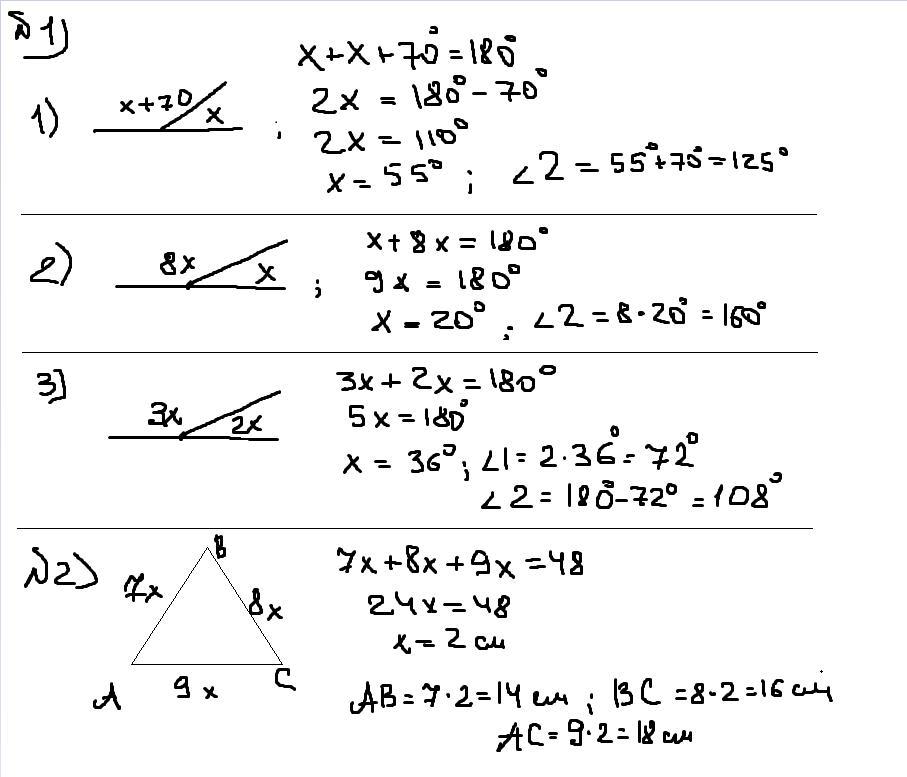 №1)
1) x+70 x ; x+x+70°=180°
2x = 180°-70°
2x = 110°
x = 55° ; ∠2 = 55°+70°=125°
2) 8x x ; x+8x=180°
9x = 180°
x = 20° ; ∠2=8·20°=160°
3) 3x 2x 3x+2x=180°
5x=180°
x = 36° ; ∠1=2·36°=72°
∠2=180°-72°=108°
№2) B 7x 8x A 9x C
7x+8x+9x=48
24x=48
x=2 см
AB=7·2=14 см ; BC=8·2=16 см
AC=9·2=18 см